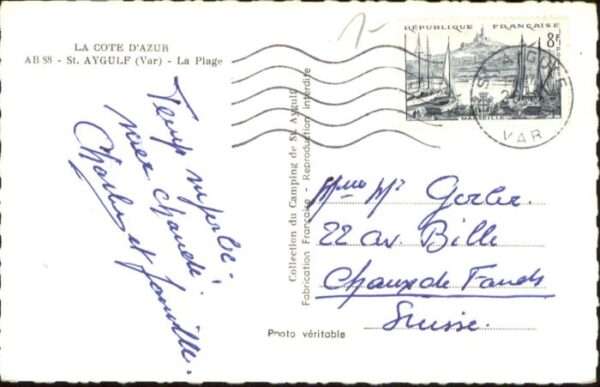 LA COTE D'AZUR
AB 88 - St. AYGULF (Var) - La Plage
1-
RÉPUBLIQUE FRANÇAISE
8F
MARSEILLE
AYGULF
VAR
Temps superbe,
mer chaude.
Charles et famille.
Collection du Camping de St. Aygulf
Fabrication Française - Reproduction Interdite
Photo véritable
Mme Mr Gerber
22 av. Bille
Chaux de Fonds
Suisse.